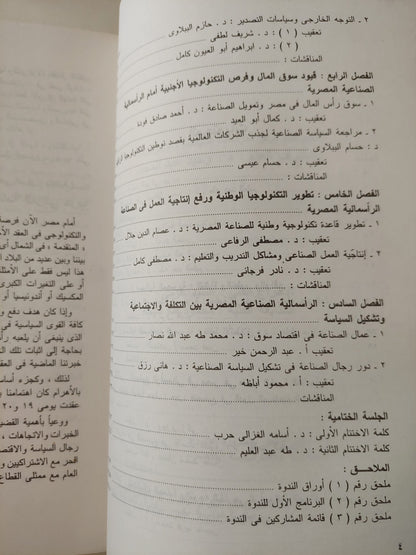 ٢ ـ التوجه الخارجى وسياسات التصدير : د . حازم الببلاوى
تعقيب ( ١ ) : د . شريف لطفى
( ٢ ) : د . ابراهيم أبو العيون كامل
المناقشات :
الفصل الرابع : قيود سوق المال وفرص التكنولوجيا الأجنبية أمام الرأسمالية
الصناعية المصرية
١ ـ سوق رأس المال فى مصر وتمويل الصناعة : د . أحمد صادق فودة
تعقيب : د . كمال أبو العيد
٢ ـ مراجعة السياسة الصناعية لجذب الشركات العالمية بقصد توطين التكنولوجيا
د : حسام الببلاوى
تعقيب : د . حسام عيسى
المناقشات :
الفصل الخامس : تطوير التكنولوجيا الوطنية ورفع إنتاجية العمل فى الصناعة
الرأسمالية المصرية
١ ـ تطوير قاعدة تكنولوجية وطنية للصناعة المصرية : د . عصام الدين جلال
تعقيب : د . مصطفى الرفاعى
٢ ـ إنتاجية العمل الصناعى ومشاكل التدريب والتعليم : د . مصطفى كامل
تعقيب : د . نادر فرجانى
المناقشات :
الفصل السادس : الرأسمالية الصناعية المصرية بين التكلفة والاجتماعية
وتشكيل السياسة
١ ـ عمال الصناعة فى اقتصاد سوق : د . محمد طه عبد الله نصار
تعقيب أ . عبد الرحمن خير
٢ ـ دور رجال الصناعة فى تشكيل السياسة الصناعية : د . هانى رزق
تعقيب : أ . محمود أباظه
المناقشات
الجلسة الختامية :
كلمة الاختتام الأولى : د . أسامه الغزالى حرب
كلمة الاختتام الثانية : د . طه عبد العليم
الملاحـق :
ملحق رقم ( ١ ) أوراق الندوة
ملحق رقم ( ٢ ) البرنامج الأول للندوة
ملحق رقم ( ٣ ) قائمة المشاركين فى الندوة
٤
أمام مصر الآن فرصة
والتكنولوجى فى العقد
المتقدمة ، فى الشمال أى
بيننا وبين عديد من البلاد
هذا ليس فقط على الأمثلة
أو على التغيرات الكبرى
المكسيك أو أندونيسيا أو
وإذا كان هدف دفع و
كافة القوى السياسية فى
الذى ينبغى أن يلعبه رأ
بحاجة إلى اثبات تلك
خبرتنا الماضية فى العقد
لذلك ، وكجزء أساسى
بالأهرام كان اهتمامنا ب
عقدت يومى ١٩ و ٢٠
ووعياً بأهمية القضية
الخبرات والاتجاهات ،
رجال السياسة والاقتصاد
العام مع ممثلى القطاع